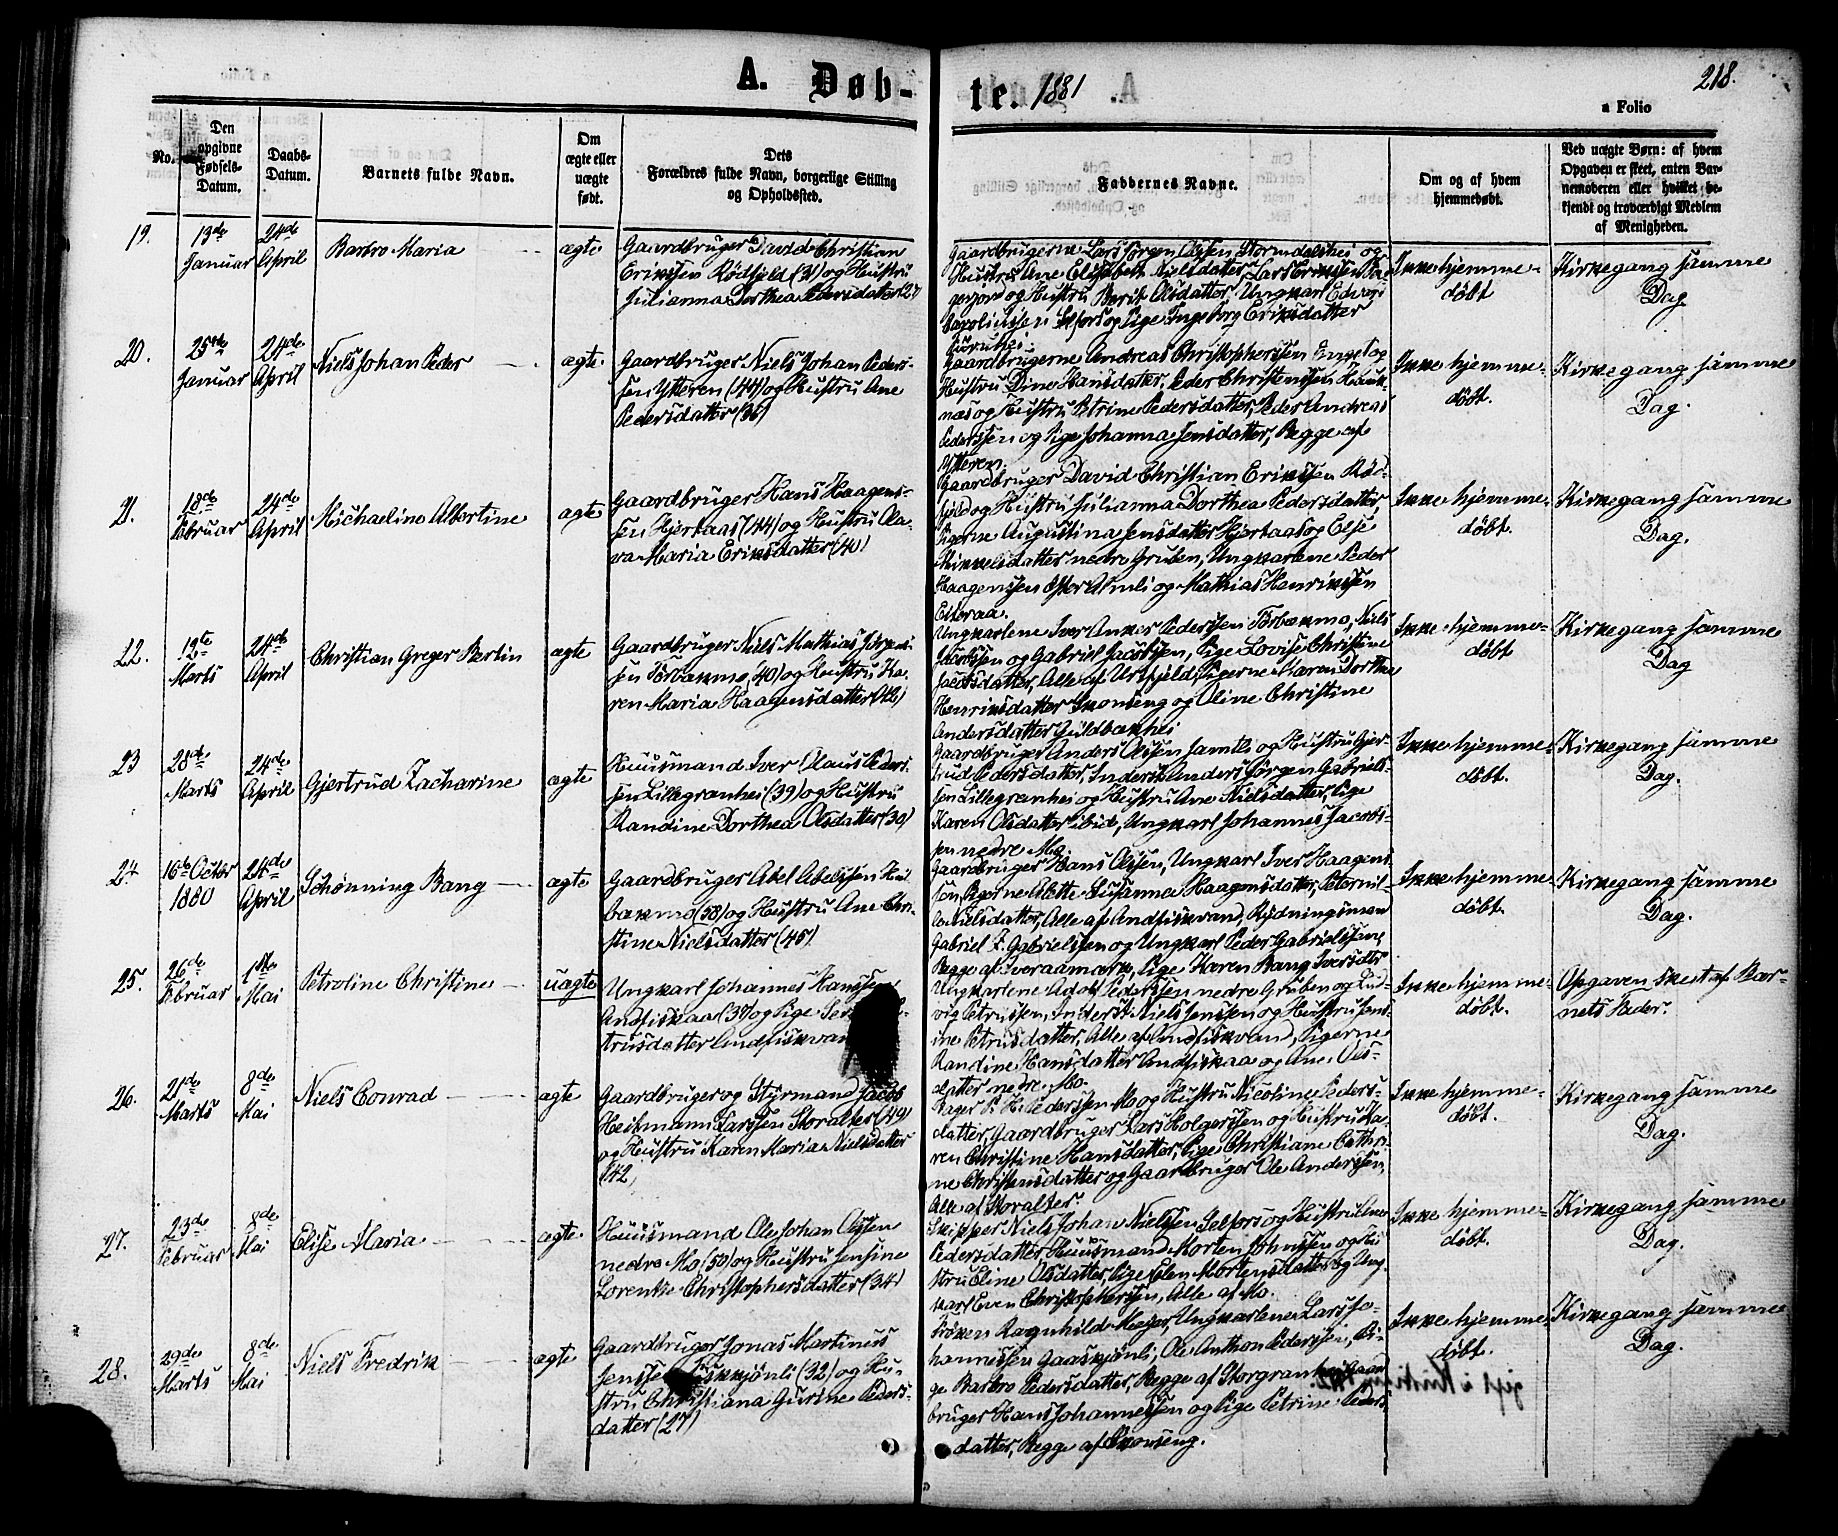 A. Døb-
te. 1881
218.
a Folio
No.
Den
opgivne
Fødsels-
Datum.
Daabs-
Datum.
Barnets fulde Navn.
Om
ægte eller
uægte
født.
Dets
Forældres fulde Navn, borgerlige Stilling
og Opholdssted.
Faddernes Navne.
Om og af hvem
hjemmedøbt.
Ved uægte Børn: af hvem
Opgaven er skeet, enten Bar-
nemoderen eller hvilket be-
kjendt og troværdigt Medlem
af Menigheden.
19.
13de
Januar
24de
April
Barbro Maria
ægte
Gaardbruger David Christian
Eriksen Rødfjeld (31) og Hustru
Julianna Dorthea Pedersdatter (27)
Gaardbrugerne Lars Jørgen Olsen Stormdalshei og
Hustru Ane Elisabeth Nielsdatter, Lars Eriksen
og Hustru Berit Olsdatter, Ungkarl Edvard
Karolinssen Selfors og Pige Ingeborg Eriksdatter
Ikke hjemme-
døbt
Kirkegang samme
Dag
20.
25de
Januar
24de
April
Niels Johan Peder
ægte
Gaardbruger Niels Johan Peder-
sen Ytteren (44) og Hustru Ane
Pedersdatter (36)
Gaardbrugerne Andreas Christophersen Enge og
Hustru Dine Hansdatter, Peder Christenssen Hauk-
næs og Hustru Petrine Pedersdatter, Peder Andreas
Pederssen og Pige Johanna Jensdatter, Begge af
Ytteren.
Ikke hjemme-
døbt.
Kirkegang samme
Dag.
21.
18de
Februar
24de
April
Michaeline Albertine
ægte
Gaardbruger Hans Haagens-
sen Hjertaas (44) og Hustru Ola-
va Maria Eriksdatter (40)
Gaardbruger David Christian Eriksen Rød-
fjeld og Hustru Julianna Dorthea Pedersdatter,
Pigerne Augustina Jensdatter Hjertaas og Else
Mikkelsdatter nedre Gruben, Ungkarlene Peder
Haagenssen Øster Almli og Mathias Henriksen
Elteraa.
Ikke hjemme-
døbt.
Kirkegang samme
Dag.
22.
13te
Marts
24de
April
Christian Greger Berlin
ægte
Gaardbruger Niels Mathias Jørgens-
sen (40) og Hustru Ka-
ren Maria Haagensdatter (42)
Ungkarlene Iver Anker Pederssen, Niels
Jacobsen og Gabriel Jacobsen, Pige Lovise Christine
Jacobsdatter, Alle af Urtfjeld, Pigerne Karen Dorthea
Henriksdatter Skonseng og Oline Christine
Andersdatter Guldbakhei
Ikke hjemme-
døbt
Kirkegang samme
Dag
23
28de
Marts
24de
April
Gjertrud Zacharine
ægte
Huusmand Iver Olaus Peders-
sen Lillegranhei (39) og Hustru
Randine Dorthea Olsdatter (30)
Gaardbruger Anders Olsen Jamtli og Hustru Gjer-
trud Pedersdatter, Inderst Anders Jørgen Gabriels-
sen Lillegranhei og Hustru Ane Nielsdatter, Pige
Karen Olsdatter ibid, Ungkarl Johannes Jacobs-
sen nedre Mo.
Ikke hjemme-
døbt.
Kirkegang samme
Dag.
24
16de Octbr
1880
24de
April
Schønning Bang
ægte
Gaardbruger Abel Abelssen
(38) og Hustru Ane Chri-
stine Nielsdatter (45)
Gaardbruger Hans Olsen, Ungkarl Iver Haagens
sen, Pigerne Alette Susanna Haagensdatter, Peternil-
le Nielsdatter, Alle af Andfiskvand, Rydningsmand
Gabriel F. Gabrielssen og Ungkarl Peder Gabrielssen,
Begge af Tveraamark, Pige Karen Bang Iversdtr
Ikke hjemme-
døbt.
Kirkegang samme
Dag.
25.
26de
Februar
1ste
Mai
Petroline Christine
uægte
Ungkarl Johannes Hanssen
Andfiskaa (37) og Pige
trusdatter Andfiskvan
Ungkarlene Adolf Pederssen nedre Gruben og Lud-
vig Petrussen, Inderst Niels Jenssen og Hustru Jens-
ine Petrusdatter, Alle af Andfiskvand, Pigerne
Randine Hansdatter Andfiskaa og Ane Ols-
datter nedre Mo.
Ikke hjemme-
døbt.
Opgaven skeet af Bar-
nets Fader.
26.
21de
Marts
8de
Mai
Niels Conrad
ægte
Gaardbruger og Styrmand Jacob
Heitmann Larssen Storalter (49)
og Hustru Karen Maria Nielsdatter
(42)
Bager P. H. Pederssen Mo og Hustru Nicoline Peders-
datter, Gaardbruger Lars Holgerssen og Hustru Ka-
ren Christine Hansdatter, Pige Christiane Cathri-
ne Christensdatter og Gaardbruger Ole Anderssen,
Alle af Storalter.
Ikke hjemme-
døbt.
Kirkegang samme
Dag.
27.
23de
Februar
8de
Mai
Elise Maria
ægte
Huusmand Ole Johan Olsen
nedre Mo (50) og Hustru Jensine
Lorentse Christophersdatter (34)
Skipper Niels Johan Nielssen Selfors og Hustru Ane
Pedersdatter, Huusmand Morten Johnssen og Hu-
stru Eline Olsdatter, Pige Elen Mortensdatter og Ung-
karl Even Christophersen, Alle af Mo.
Ikke hjemme-
døbt.
Kirkegang samme
Dag.
28.
29de
Marts
8de
Mai
Niels Fredrik
ægte
Gaardbruger Jonas Martinus
Jenssen (32) og Hu-
stru Christiana Gurine Peders-
datter (27)
Frøken Ragnhild Meyer, Ungkarlene Lars Jo-
hannessen Gaaskjønli, Ole Anthon Pederssen, Pi-
ge Barbro Pedersdatter, Begge af Storgranhei, Gaard
bruger Hans Johannessen og Pige Petrine Peders
datter, Begge af Skonseng.
Ikke hjemme-
døbt.
Kirkegang samme
Dag.